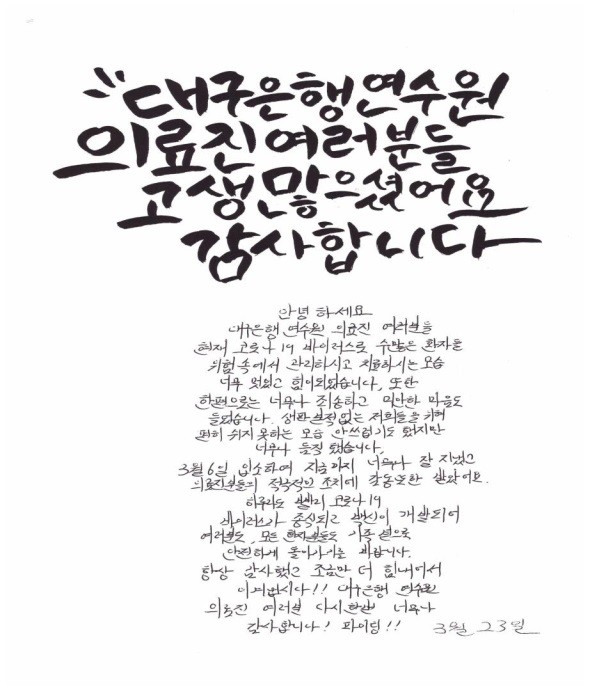 대구은행연수원
의료진여러분들
고생많으셨어요
감사합니다
안녕하세요
대구은행 연수원 의료진 여러분들
현재 코로나 19 바이러스로 수많은 환자를
위험 속에서 관리하시고 치료하시는 모습
너무 멋있고 힘이되었습니다, 또한
한편으로는 너무나 죄송하고 미안한 마음도
들었습니다. 생환 없는 저희들을 위해
편히 쉬지 못하는 모습 안쓰럽기도 했지만
너무나 듬직 했습니다,
3월6일 입소하여 지금까지 너무나 잘 지냈고
의료진분들의 적극적인 조치에 감동또한 받았어요.
하루라도 빨리 코로나19
바이러스가 종식되고 백신이 개발되어
여러분도, 모든 환자분들도 가족 곁으로
안전하게 돌아가기를 바랍니다.
항상 감사했고 조금만 더 힘내어서
이겨냅시다!! 대구은행 연수원
의료진 여러분 다시한번 너무나
감사합니다! 파이팅!! 3월 23일